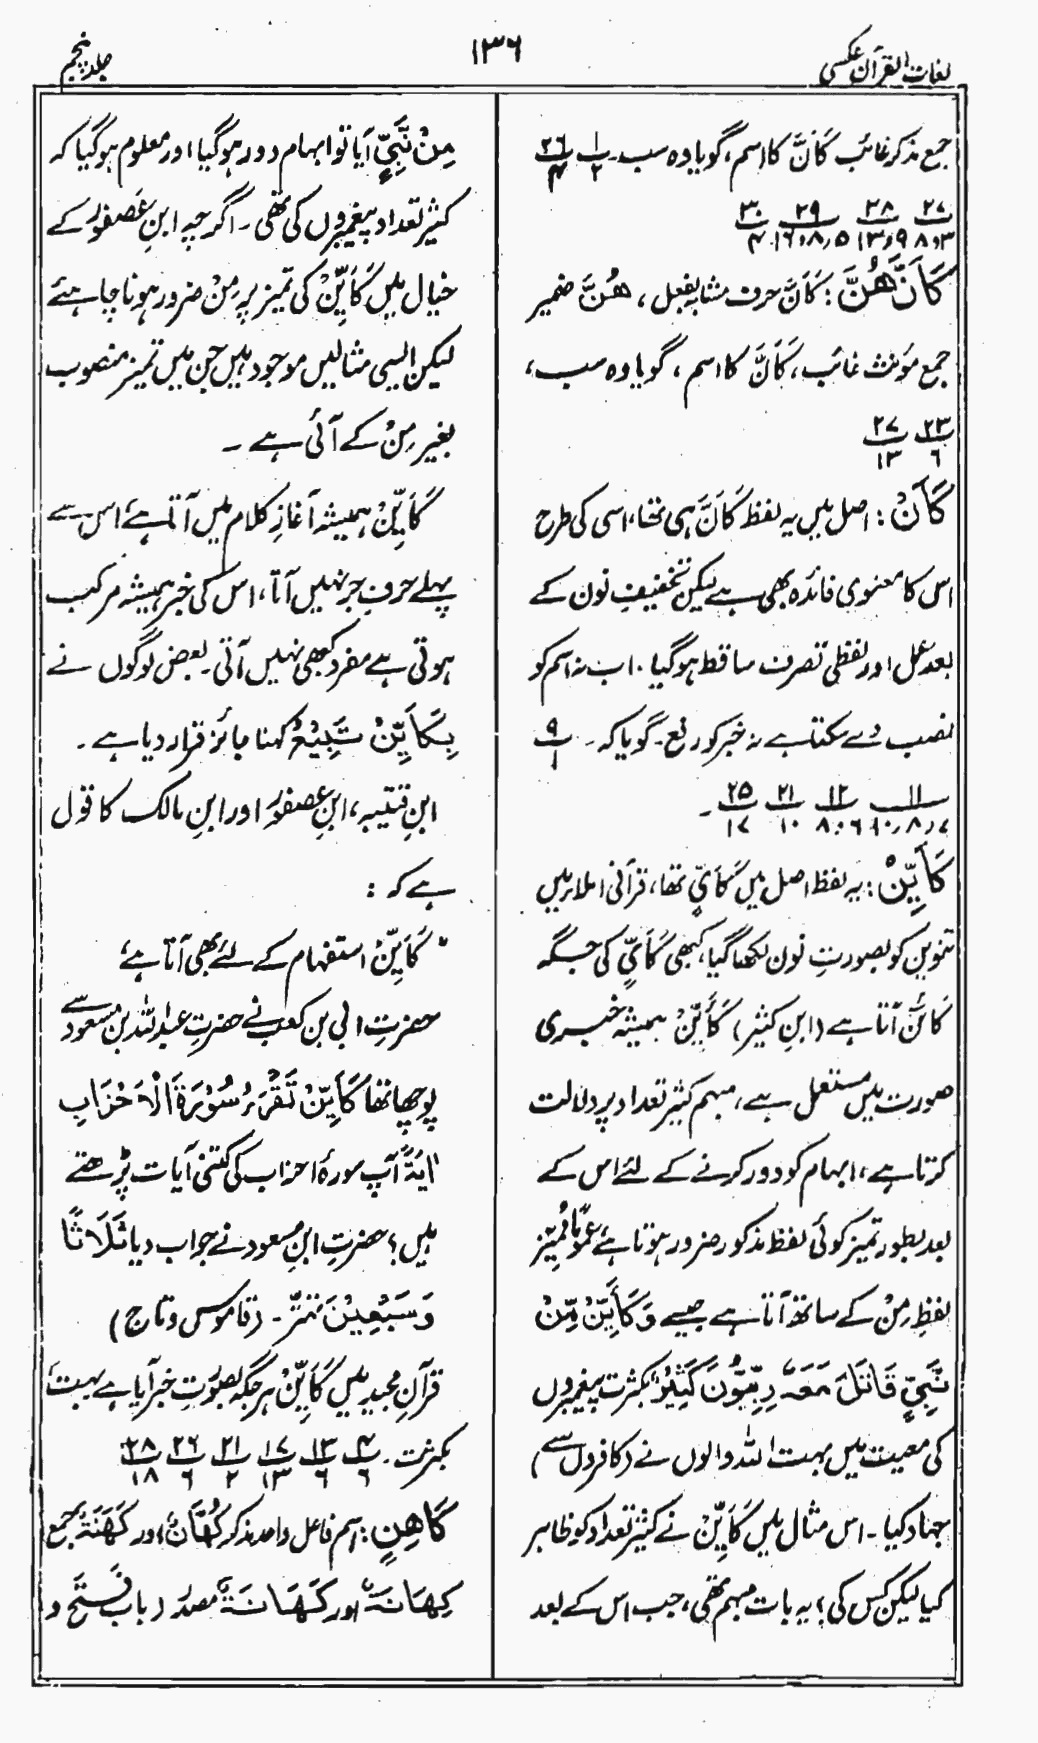 لغات القرآن عکسی
۱۳۶
جلد پنجم
جمع مذکر غائب کَاَنَّ کا اسم، گویا وہ سب۔ ۱/۲ ۲۶/۴
۲۷/۸،۳ ۲۸/۱۳،۹ ۲۹/۱۶،۸،۵ ۳۰/۴
کَاَنَّھُنَّ: کَاَنَّ حرف مشابہ بفعل، ھُنَّ ضمیر
جمع مؤنث غائب، کَاَنَّ کا اسم، گویا وہ سب،
۲۳/۶ ۲۷/۱۳
کَاَنْ: اصل میں یہ لفظ کَاَنَّ ہی تھا، اسی کی طرح
اس کا معنوی فائدہ بھی ہے لیکن تخفیفِ نون کے
بعد عمل اور لفظی تصرف ساقط ہوگیا۔ اب نہ اسم کو
نصب دے سکتا ہے نہ خبر کو رفع۔ گویا کہ۔ ۹/۱
۱۱/۱۰،۸،۷ ۱۲/۸،۶ ۲۱/۱۰ ۲۵/۱۷ ۔
کَاَیِّنْ: یہ لفظ اصل میں کَاَیٍّ تھا، قرآنی املاء میں
تنوین کو بصورتِ نون لکھا گیا، کبھی کَاَیٍّ کی جگہ
کَائِنْ آتا ہے (ابن کثیر) کَاَیِّنْ ہمیشہ خبری
صورت میں مستعمل ہے، مبہم کثیر تعداد پر دلالت
کرتا ہے، ابہام کو دور کرنے کے لئے اس کے
بعد بطور تمیز کوئی لفظ مذکور ضرور ہوتا ہے عموماً ممیز
لفظِ مِنْ کے ساتھ آتا ہے جیسے وَکَاَیِّنْ مِّنْ
نَّبِیٍّ قَاتَلَ مَعَہٗ رِبِّیُّوْنَ کَثِیْرٌ بکثرت پیغمبروں
کی معیت میں بہت اللہ والوں نے (کافروں سے)
جہاد کیا۔ اس مثال میں کَاَیِّنْ نے کثیر تعداد کو ظاہر
کیا لیکن کس کی؟ یہ بات مبہم تھی، جب اس کے بعد
مِنْ نَّبِیٍّ آیا تو ابہام دور ہوگیا اور معلوم ہوگیا کہ
کثیر تعداد پیغمبروں کی تھی۔ اگرچہ ابنِ عصفور کے
خیال میں کَاَیِّنْ کی تمیز پر مِنْ ضرور ہونا چاہئے
لیکن ایسی مثالیں موجود ہیں جن میں تمیز منصوب
بغیر مِنْ کے آئی ہے ۔
کَاَیِّنْ ہمیشہ آغازِ کلام میں آتا ہے اس سے
پہلے حرفِ جر نہیں آتا، اس کی خبر ہمیشہ مرکب
ہوتی ہے مفرد کبھی نہیں آتی۔ بعض لوگوں نے
بِکَاَیِّنْ تَبِیْعُ کہنا جائز قرار دیا ہے ۔
ابنِ قتیبہ، ابنِ عصفور اور ابنِ مالک کا قول
ہے کہ :
"کَاَیِّنْ استفہام کے لئے بھی آتا ہے
حضرتِ ابی بن کعب نے حضرتِ عبداللہ بن مسعود سے
پوچھا تھا کَاَیِّنْ تَقْرَءُ سُوْرَۃَ الْاَحْزَابِ
اٰیَۃً آپ سورۂ احزاب کی کتنی آیات پڑھتے
ہیں؟ حضرتِ ابنِ مسعود نے جواب دیا ثَلَاثًا
وَسَبْعِیْنَ ۔ (قاموس و تاج)
قرآنِ مجید میں کَاَیِّنْ ہر جگہ بصورتِ خبر آیا ہے بہت،
بکثرت ۔ ۴/۶ ۱۳/۶ ۱۷/۱۳ ۲۱/۲ ۲۶/۶ ۲۸/۱۸
کَاھِنٍ: اسم فاعل واحد مذکر کُھَّانٌ اور کَھَنَۃٌ جمع
کِھَانَۃٌ اور کَھَانَۃٌ مصدر (باب فَتَحَ و